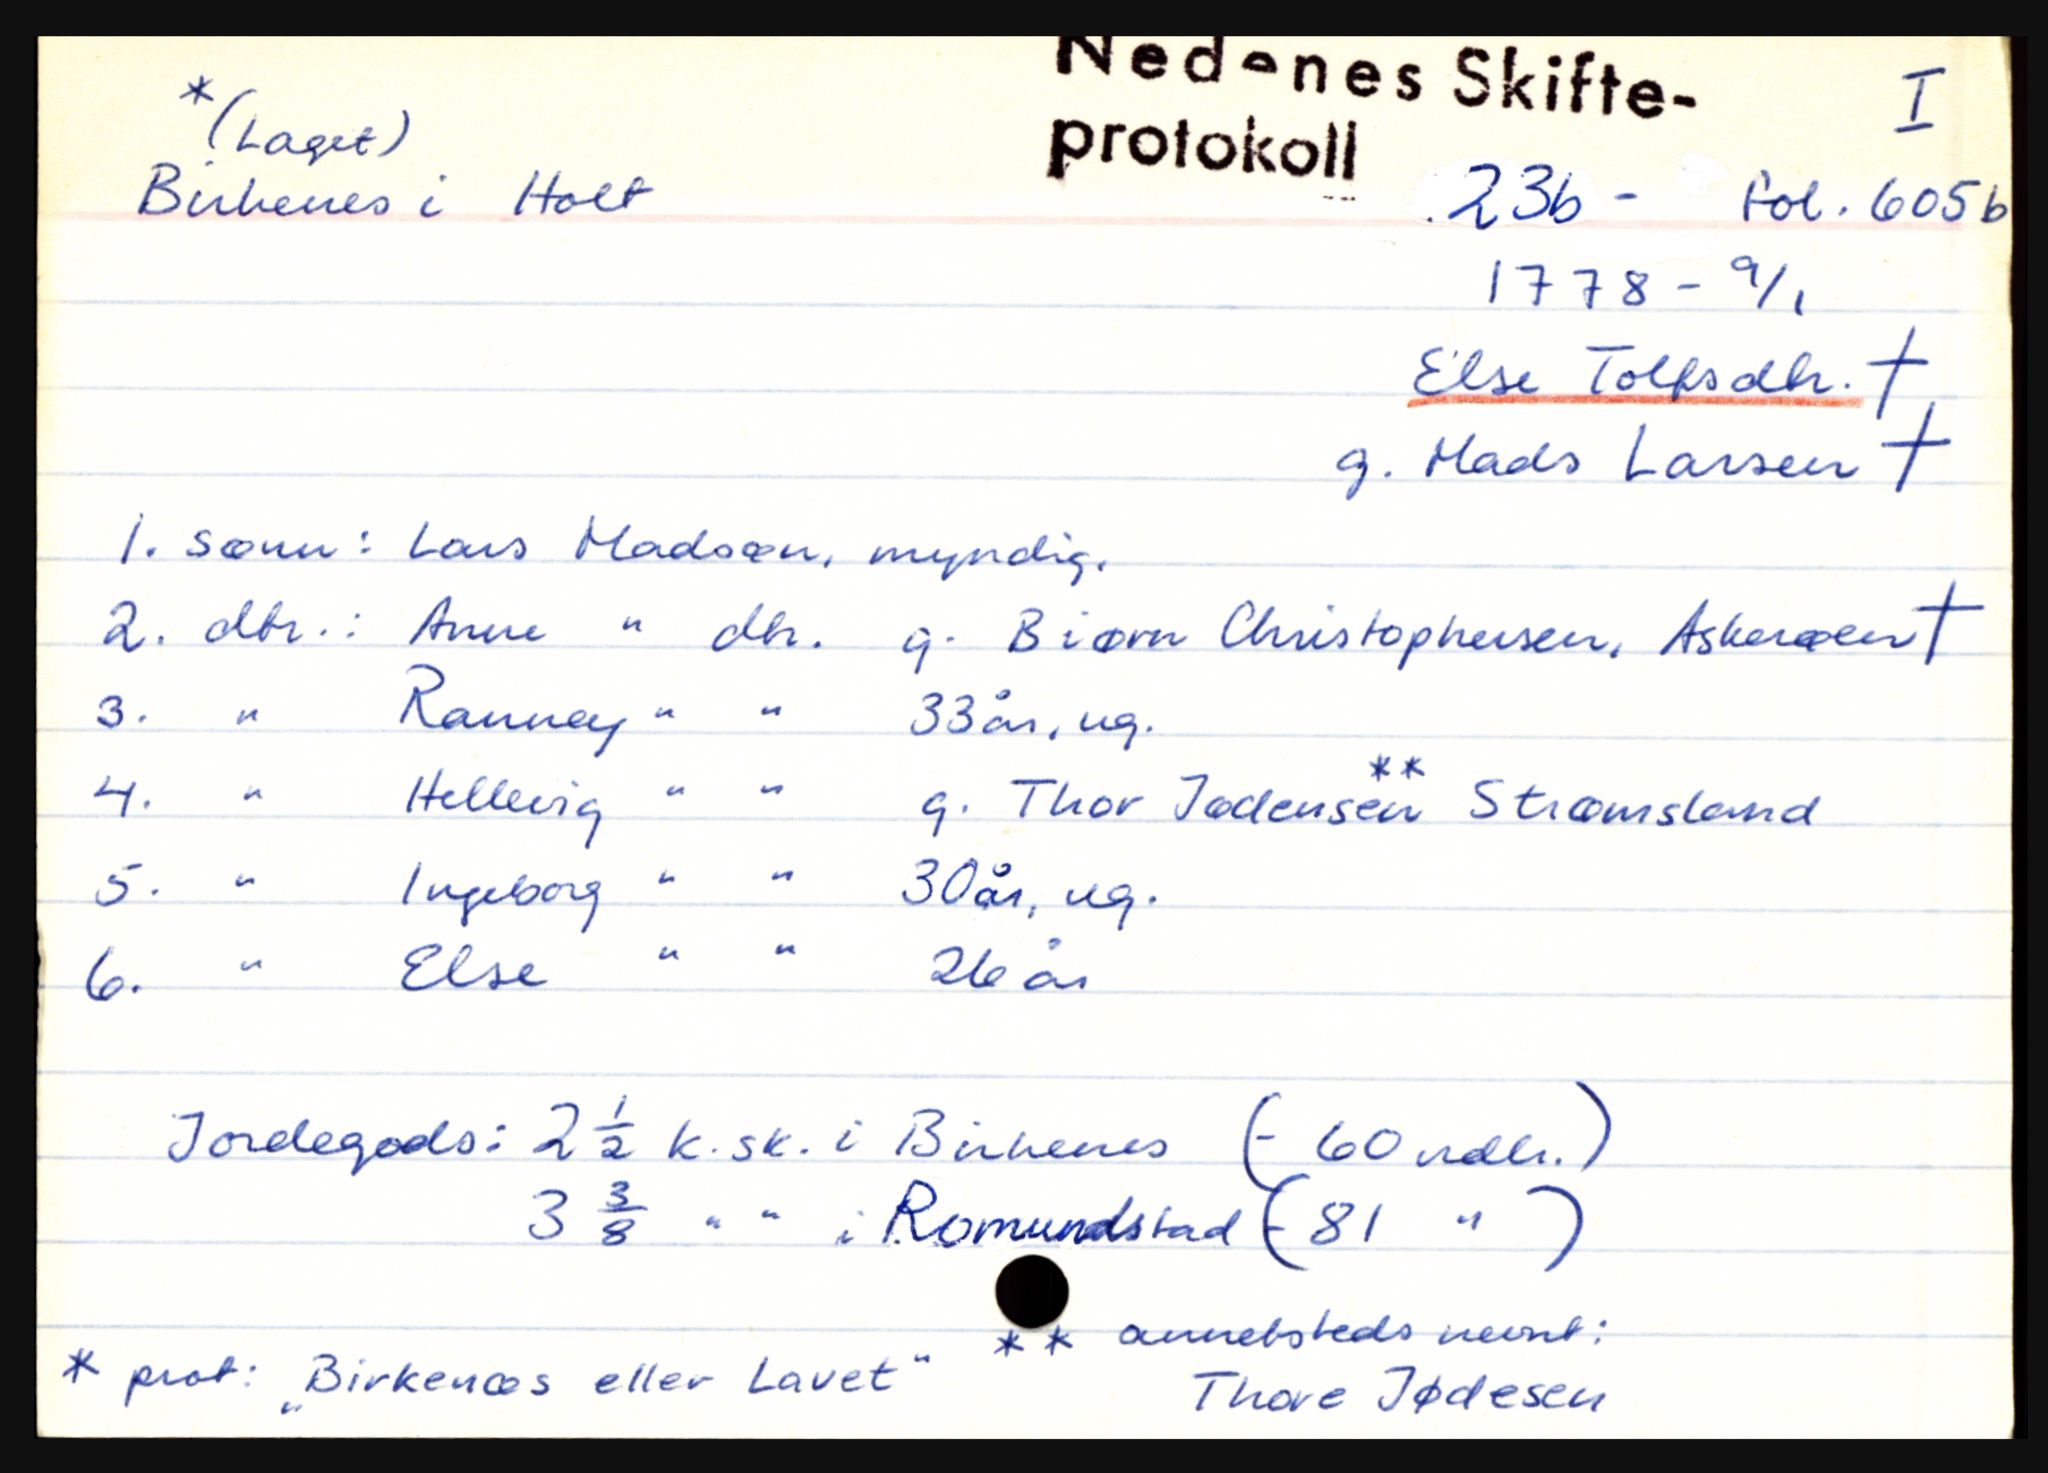 Nedenes Skifte-
protokoll
I
*(Laget)
Birkenes i Holt
23b - Fol. 605b
1778 - 9/1
Else Tolfsdtr. †
g. Mads Larsen †
1. sønn: Lars Madsøn, myndig.
2. dtr.: Anne " dtr. g. Biørn Christophersen, Askerøen †
3. " Ranney " " 33 år, ug.
4. " Hellevig " " g. Thor Jødensen ** Strømsland
5. " Ingeborg " " 30 år, ug.
6. " Else " " 26 år
Jordegods: 2 1/2 k.sk. i Birkenes (- 60 rdlr.)
3 3/8 " " i Romundstad (- 81 ")
* prot: „Birkenæs eller Lavet"
** annetsteds nevnt:
Thore Jødesen